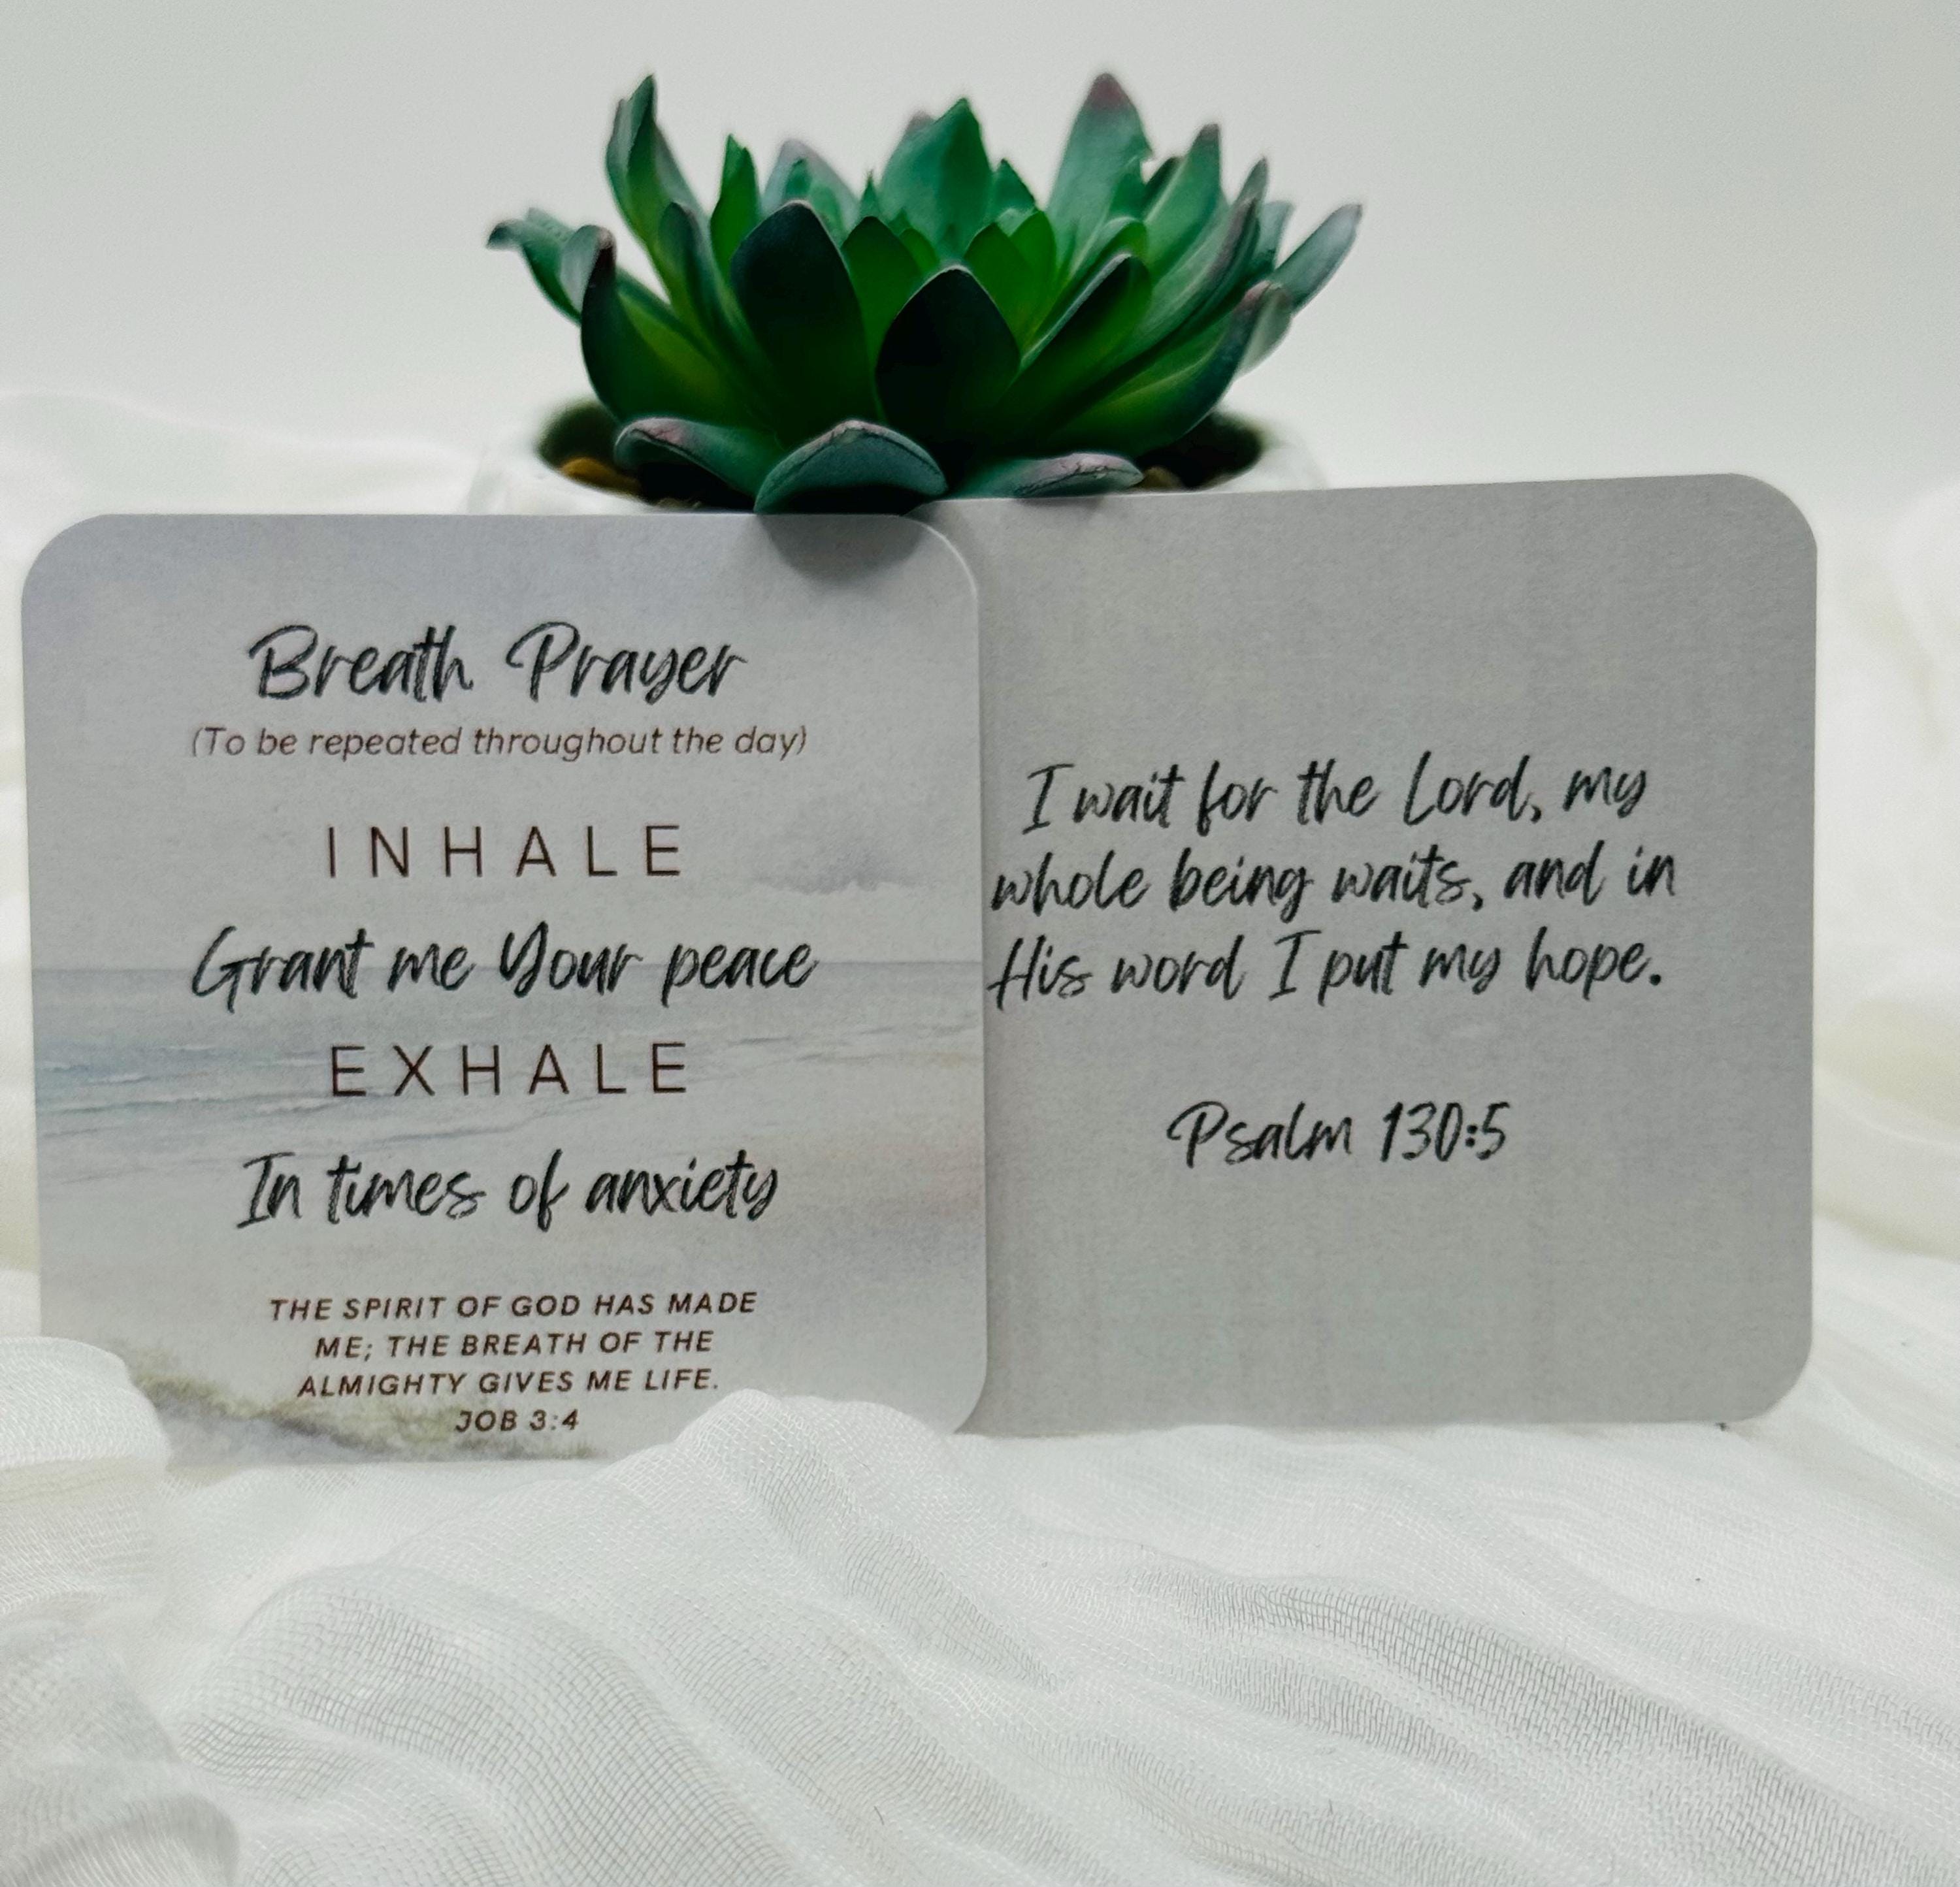 Breath Prayer
(To be repeated throughout the day)
INHALE
Grant me Your peace
EXHALE
In times of anxiety
THE SPIRIT OF GOD HAS MADE
ME; THE BREATH OF THE
ALMIGHTY GIVES ME LIFE.
JOB 3:4
I wait for the Lord, my
whole being waits, and in
His word I put my hope.
Psalm 130:5